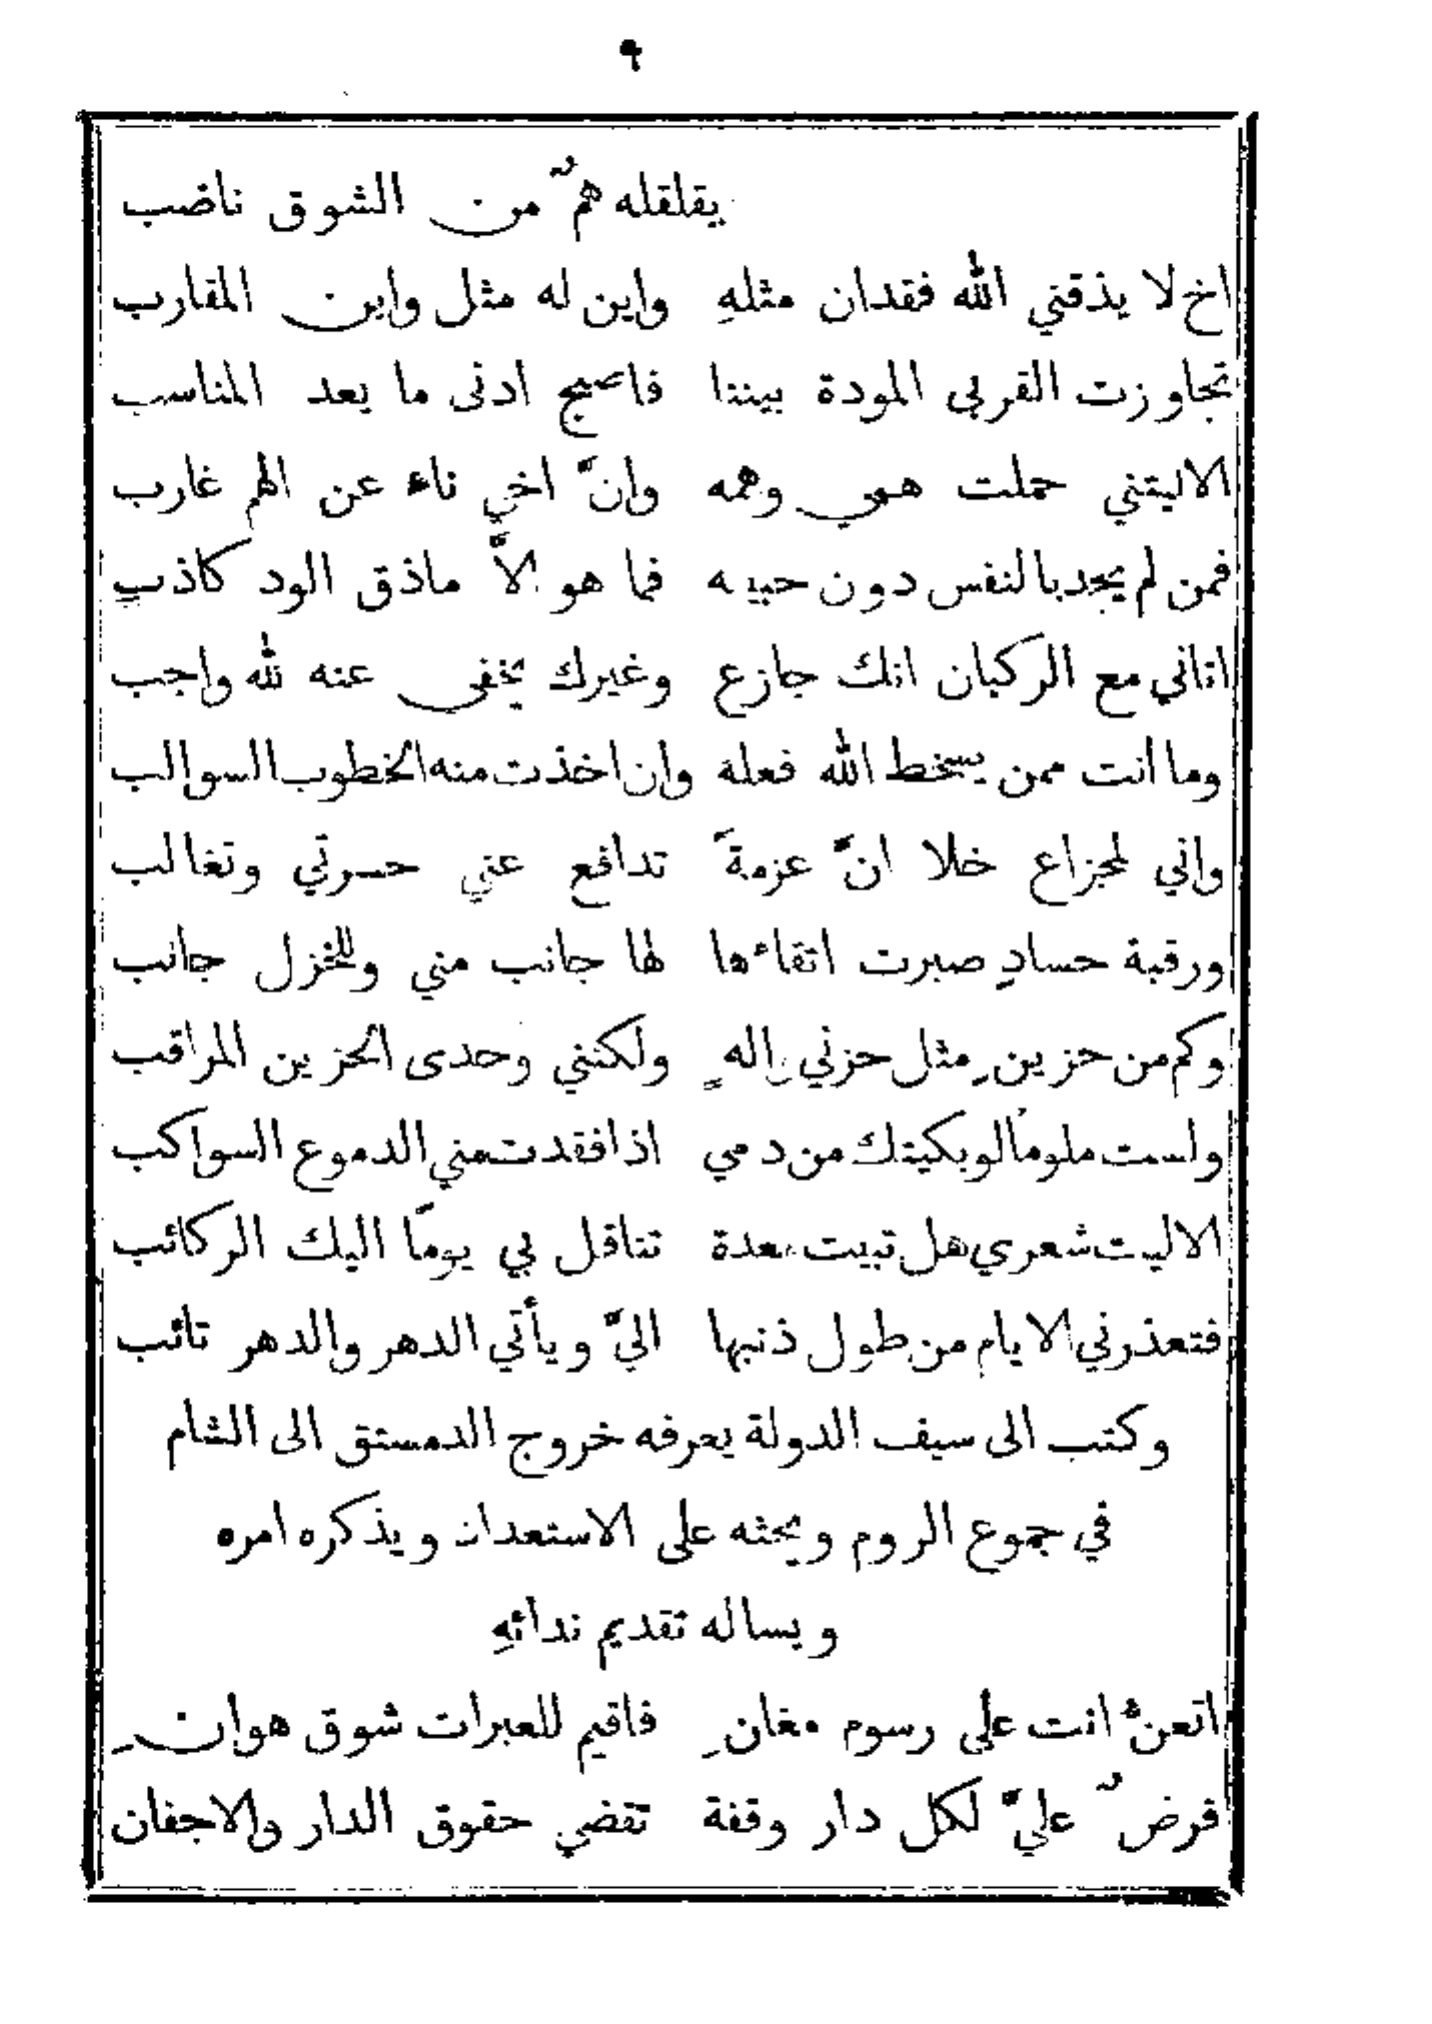 ٩
يقلقله همٌ من الشوق ناضب
اخ لا يذقني الله فقدان مثلهِ واين له مثل واين المقارب
تجاوزت القربى المودة بيننا فاصبح ادنى ما يعد المناسب
الاليتني حملت همي وهمه وانَّ اخي ناء عن الهم غارب
فمن لم يجد بالنفس دون حبيبه فما هو الاَّ ماذق الود كاذب
اتاني مع الركبان انك جازع وغيرك يخفى عنه لله واجب
وما انت ممن يسخط الله فعله وان اخذت منه الخطوب السوالب
واني لمجزاع خلا انَّ عزمةً تدافع عني حسرتي وتغالب
ورقبة حسادٍ صبرت اتقاءها لها جانب مني وللخزل جانب
وكم من حزينٍ مثل حزني والهٍ ولكنني وحدى الحزين المراقب
ولست ملوماً لو بكيتك من دمي اذا فقدت مني الدموع السواكب
الا ليت شعري هل تبيت معدة تناقل بي يوماً اليك الركائب
فتعذرني الايام من طول ذنبها اليَّ ويأتي الدهر والدهر تائب
وكتب الى سيف الدولة يعرفه خروج الدمستق الى الشام
في جموع الروم ويحثه على الاستعداد ويذكره امره
ويساله تقديم ندائهِ
اتعزُّ انت على رسوم مغانٍ فاقيم للعبرات شوق هوانٍ
فرضٌ عليَّ لكل دار وقفة تقضي حقوق الدار والاجفان